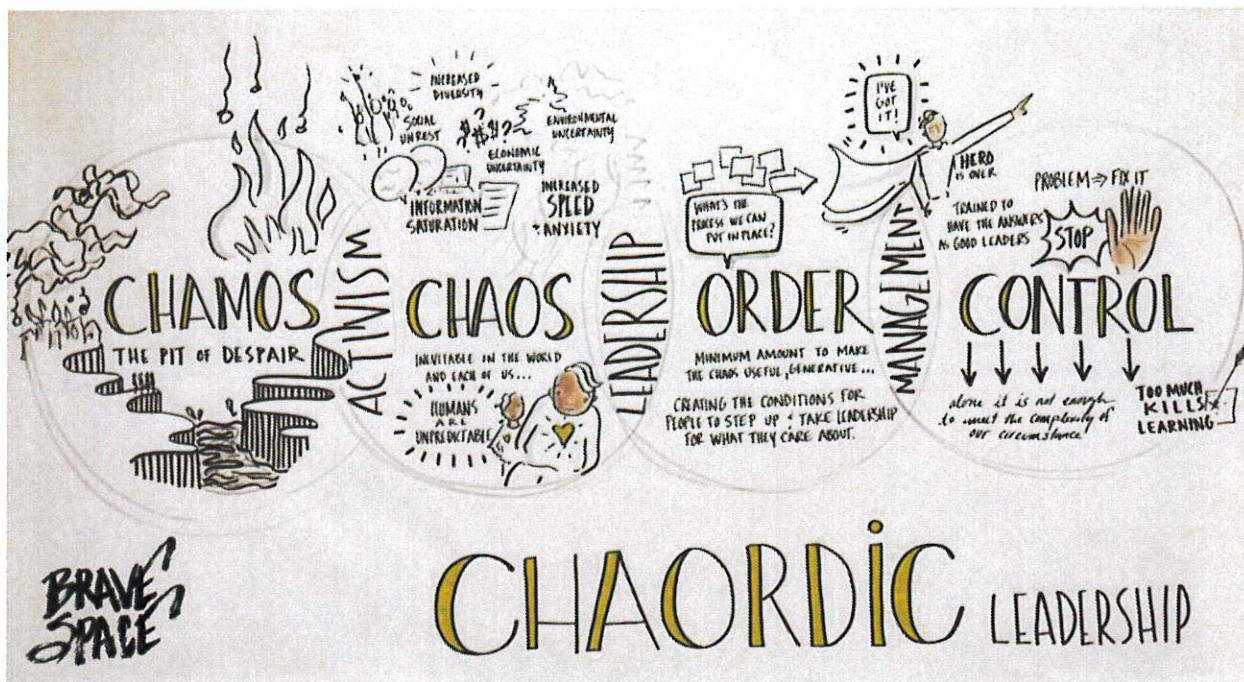 CHAMOS
THE PIT OF DESPAIR
ACTIVISM
INCREASED
DIVERSITY
SOCIAL
UNREST
$$?
ENVIRONMENTAL
UNCERTAINTY
ECONOMIC
UNCERTAINTY
INFORMATION
SATURATION
INCREASED
SPEED
+ ANXIETY
CHAOS
INEVITABLE IN THE WORLD
AND EACH OF US...
HUMANS
ARE
UNPREDICTABLE
LEADERSHIP
WHAT'S THE
PROCESS WE CAN
PUT IN PLACE?
ORDER
MINIMUM AMOUNT TO MAKE
THE CHAOS USEFUL, GENERATIVE...
CREATING THE CONDITIONS FOR
PEOPLE TO STEP UP + TAKE LEADERSHIP
FOR WHAT THEY CARE ABOUT.
MANAGEMENT
I'VE
GOT
IT!
HERO
IS OVER
TRAINED TO
HAVE THE ANSWERS
AS GOOD LEADERS
PROBLEM ⇒ FIX IT
STOP
CONTROL
alone it is not enough
to meet the complexity of
our circumstance
TOO MUCH
KILLS
LEARNING
BRAVE
SPACE
CHAORDIC LEADERSHIP